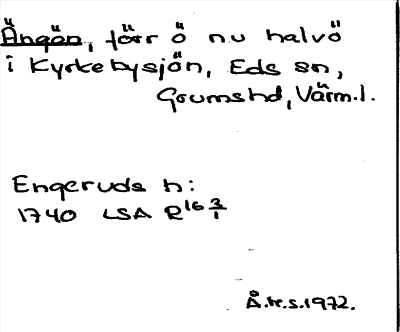 Ängön, förr ö nu halvö
i Kyrkebysjön, Eds sn,
Grumshd, Värml.
Engeruds h:
1740 LSA R16 3/1
Å.H.S.1972.